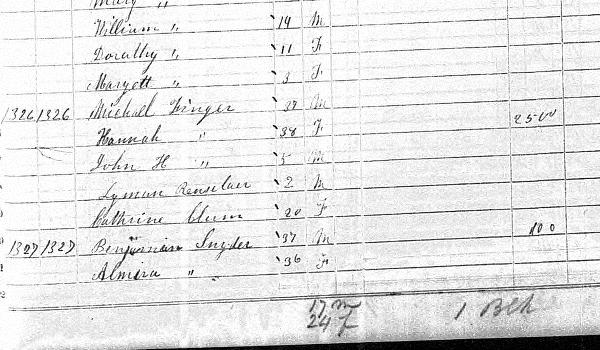 Mary "
William " 14 M
Dorathy " 11 F
Margett " 3 F
1326 1326 Michall Finger 39 M 2500
Hannah " 38 F
John H " 5 M
Lyman Renselaer 2 M
Cathrine Clum 20 F
1327 1327 Benjamin Snyder 37 M 100
Almira " 36 F
17 m
24 f 1 Blk